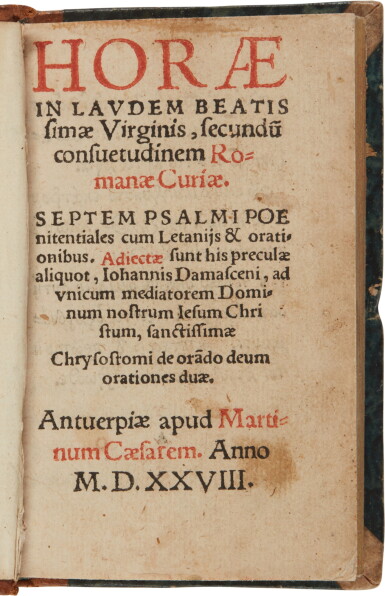 HORÆ
IN LAVDEM BEATIS
simæ Virginis, secundū
consuetudinem Ro-
manæ Curiæ.
SEPTEM PSALMI POE
nitentiales cum Letanijs & orati-
onibus. Adiectæ sunt his preculæ
aliquot, Iohannis Damasceni, ad
vnicum mediatorem Domi-
num nostrum Iesum Chri
stum, sanctissimæ
Chrysostomi de orādo deum
orationes duæ.
Antuerpiæ apud Marti-
num Cæsarem. Anno
M. D. XXVIII.